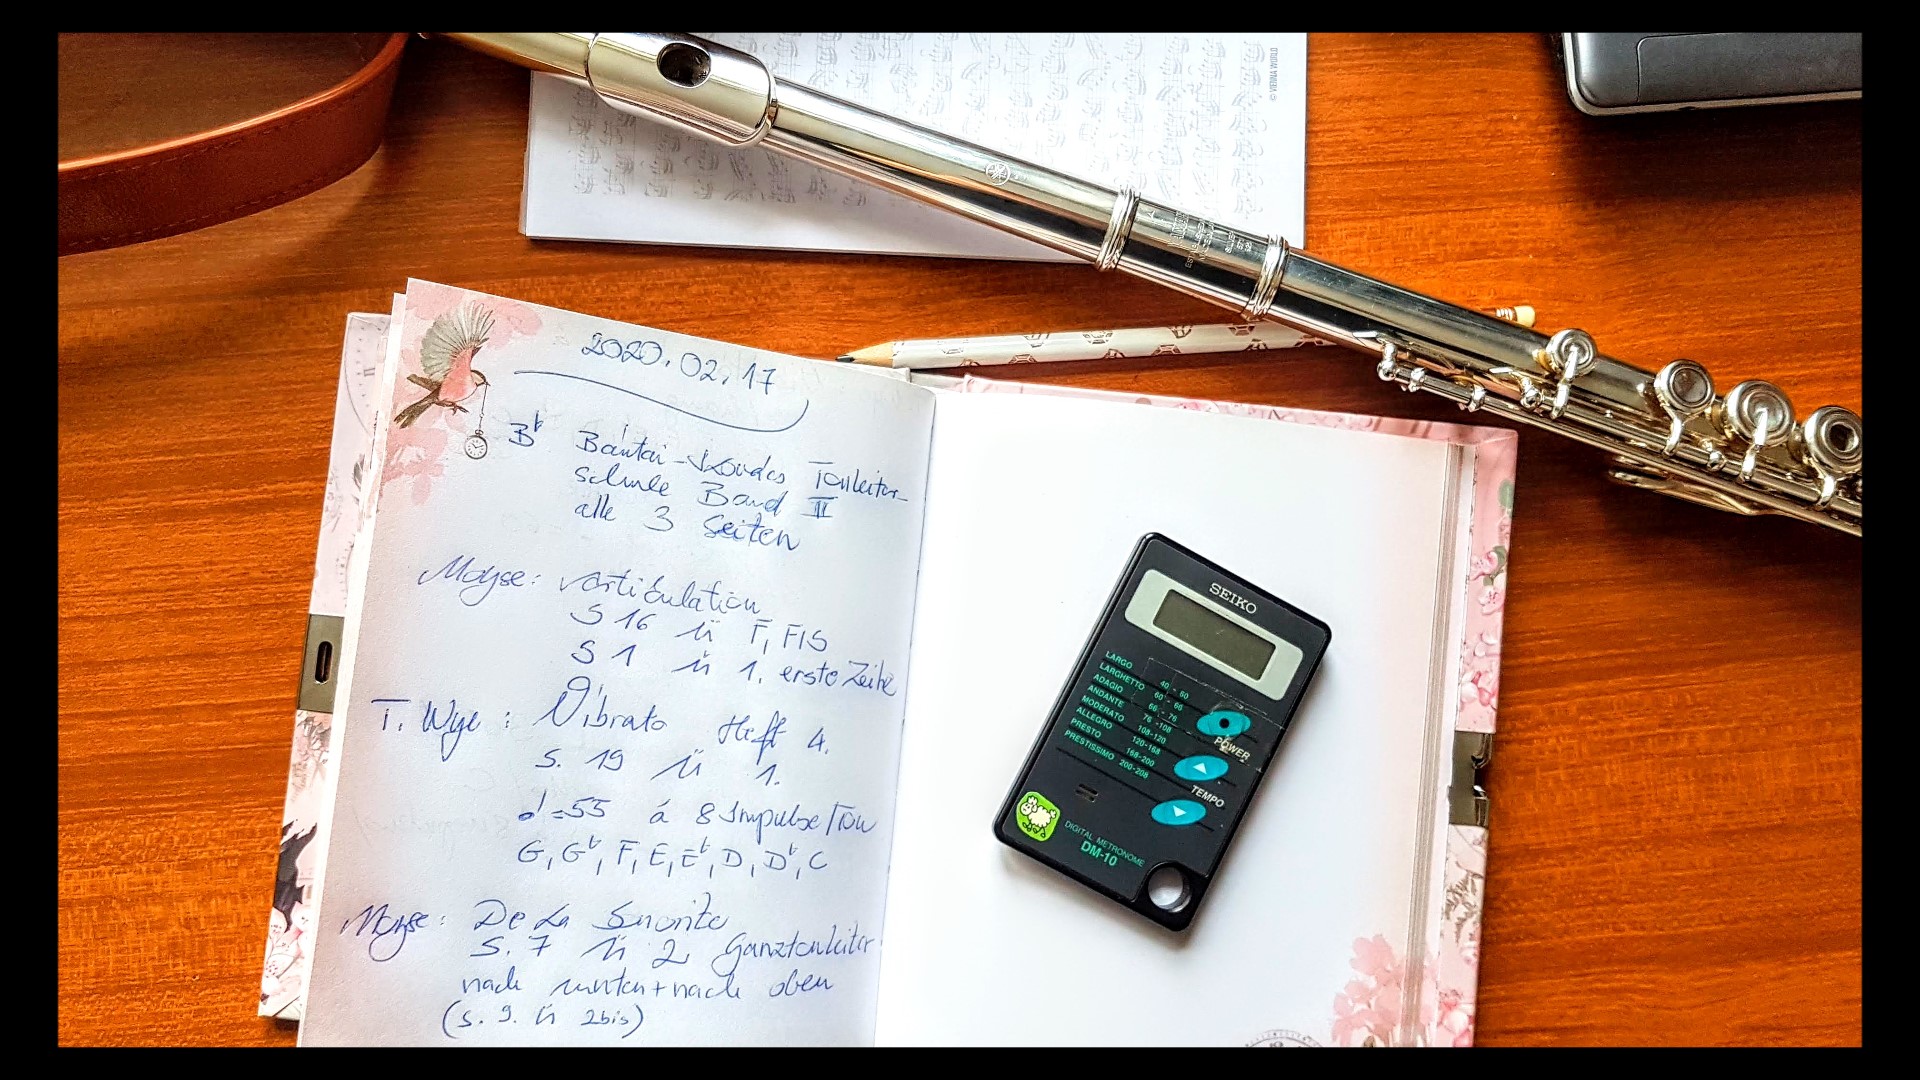 © VIENNA WORLD
2020.02.17
B♭ Bántai-Kovács Tonleiter-
schule Band II
alle 3 Seiten
Moyse: Artikulation
S 16 Ü F, FIS
S 1 Ü 1. erste Zeile
T. Wye: Vibrato Heft 4.
S. 19 Ü 1.
=55 á 8 Impulse/Ton
G, G♭, F, E, E♭, D, D♭, C
Moyse: De La Sonorite
S. 7 Ü 2 Ganztonleiter
nach unten + nach oben
(S. 9. Ü 2bis)
SEIKO
LARGO 40 - 60
LARGHETTO 60 - 66
ADAGIO 66 - 76
ANDANTE 76 - 108
MODERATO 108-120
ALLEGRO 120-168
PRESTO 168-200
PRESTISSIMO 200-208
POWER
TEMPO
DIGITAL METRONOME
DM-10